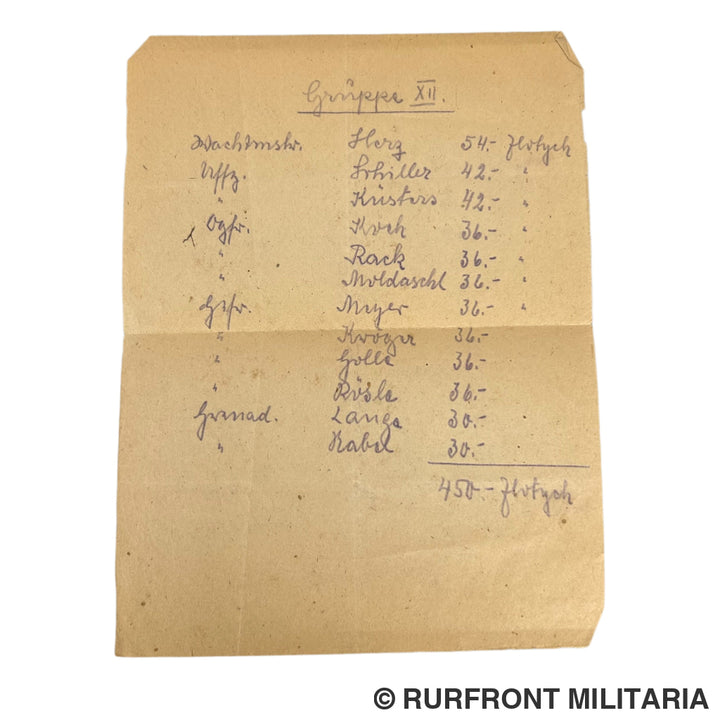 Gruppe XII.
Wachtmstr. Herz 54.- Zlotych
Uffz. Schiller 42.- "
" Küsters 42.- "
Ogfr. Koch 36.- "
" Rack 36.- "
" Moldaschl 36.- "
Gefr. Meyer 36.- "
" Kröger 36.-
" Golle 36.-
" Rösle 36.-
Grenad. Lange 30.- "
" Kabel 30.-
450.- Zlotych
© RURFRONT MILITARIA